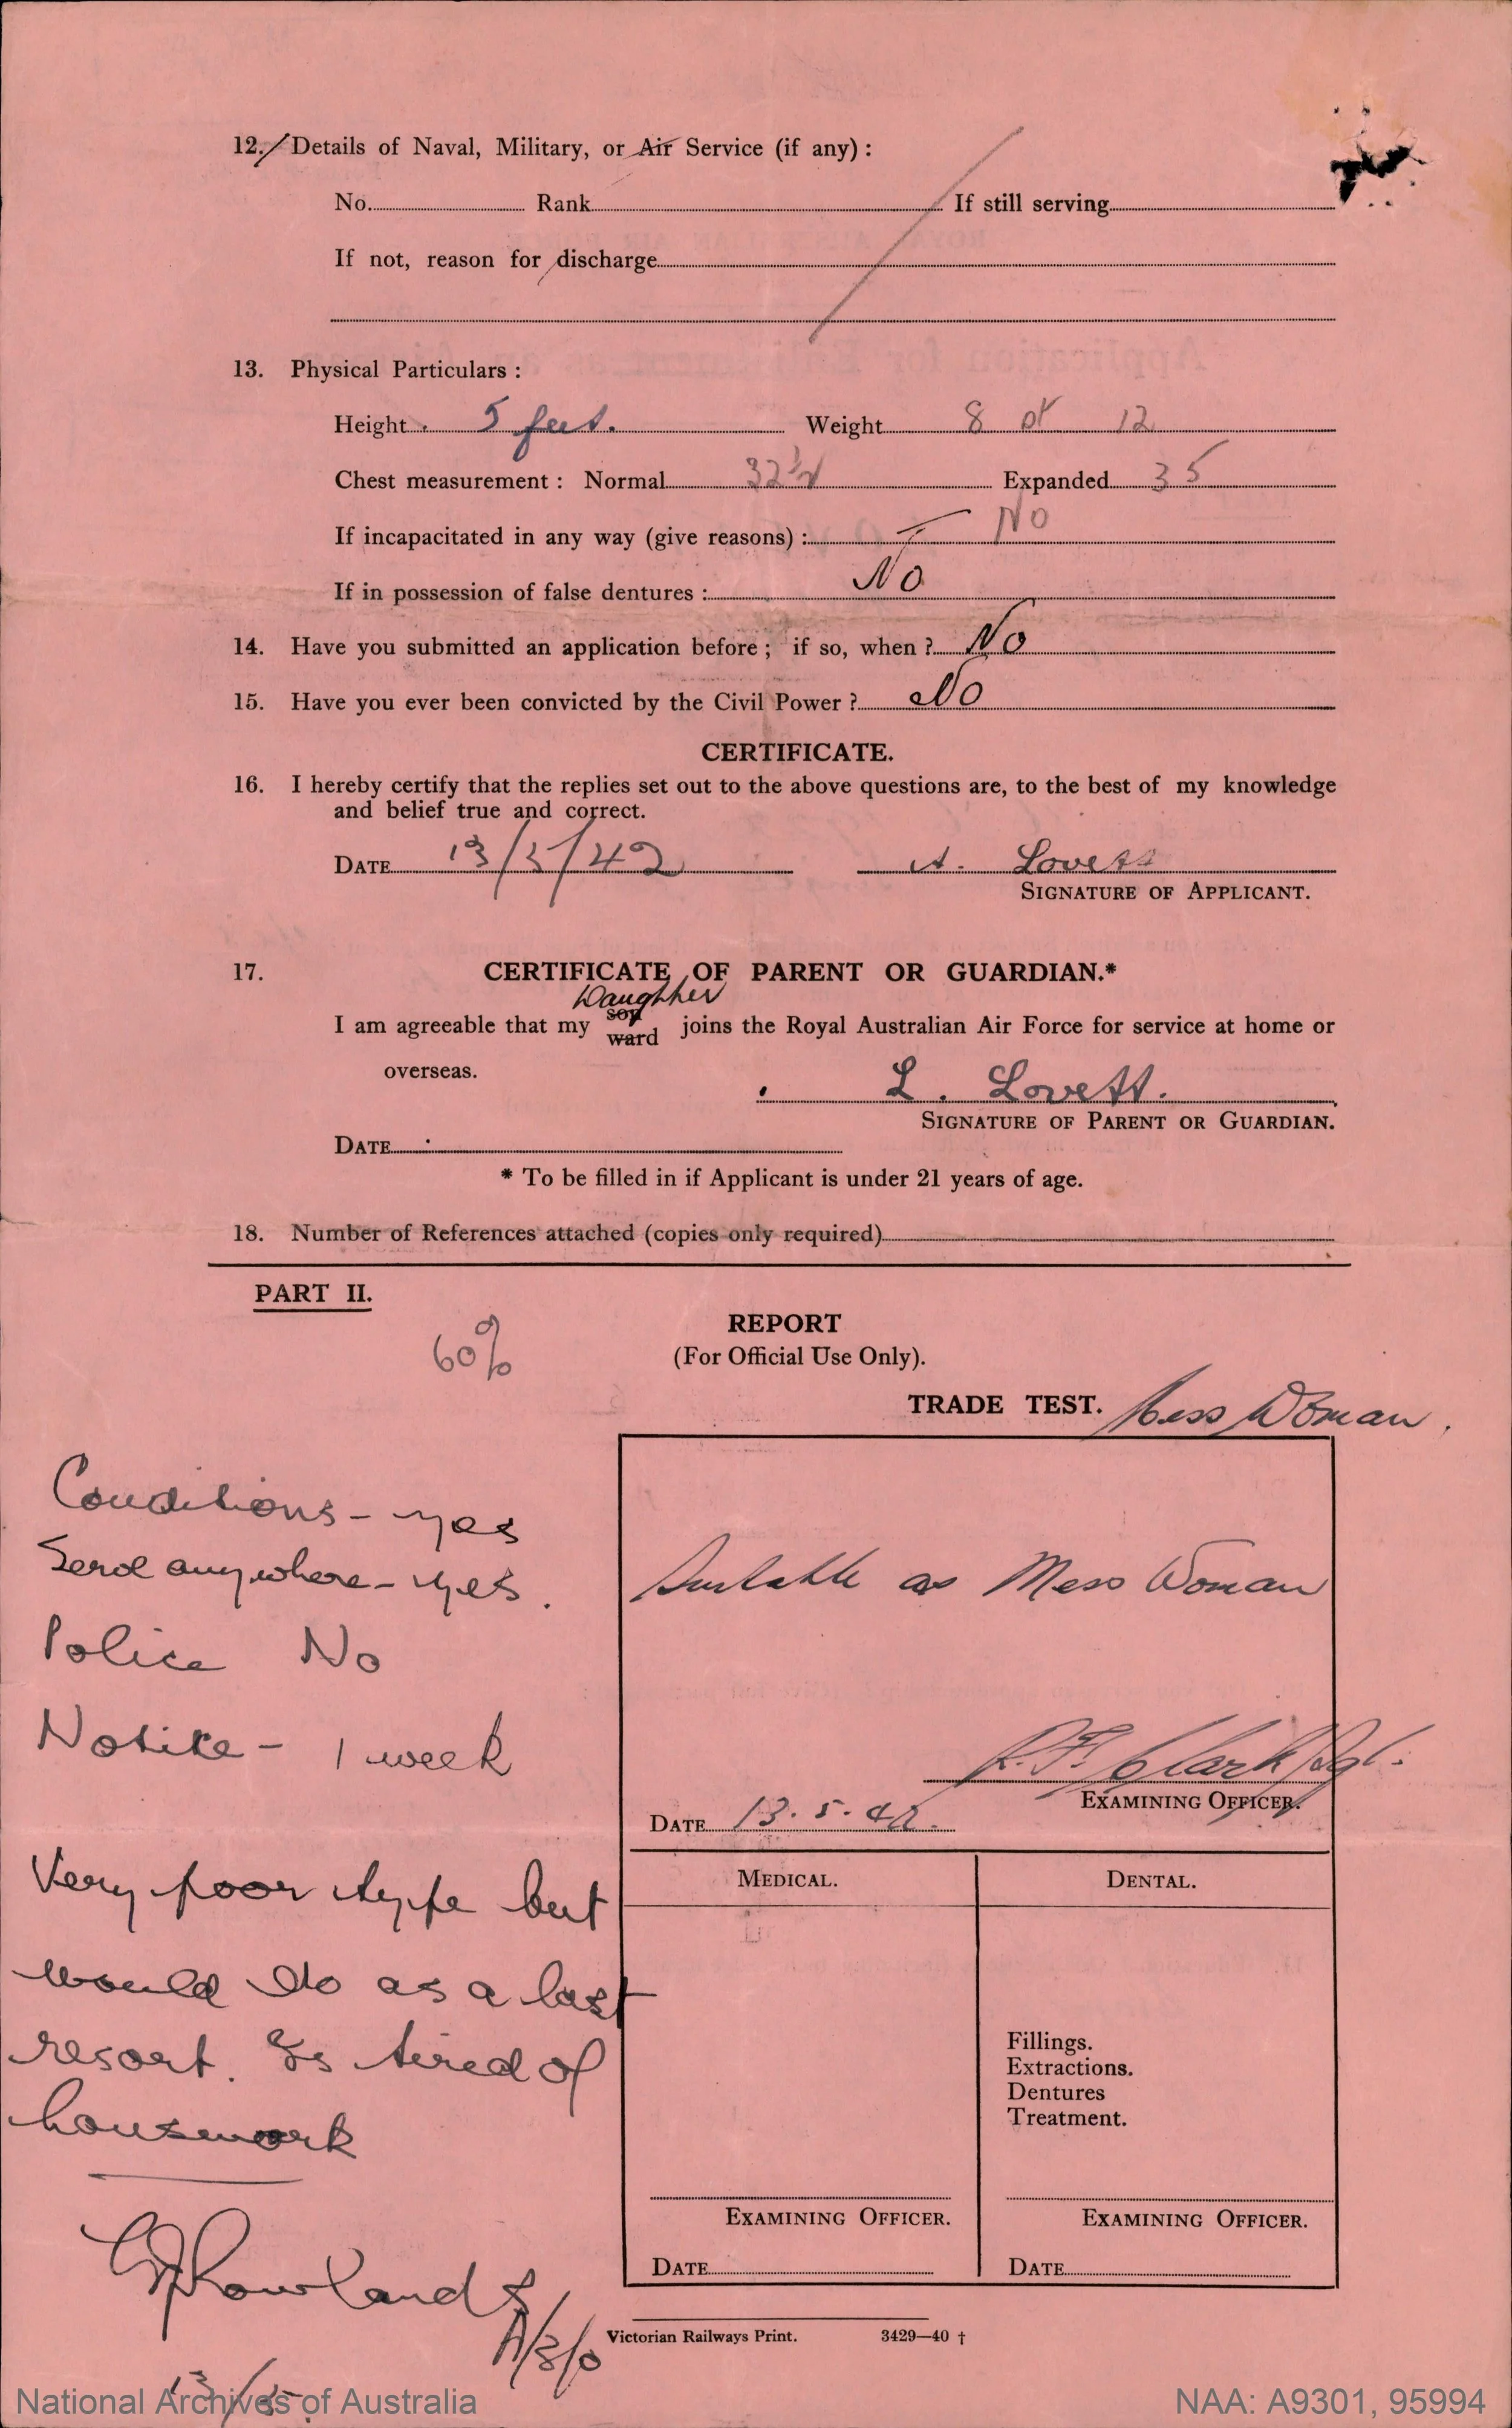 12. Details of Naval, Military, or Air Service (if any) :
No. Rank If still serving
If not, reason for discharge
13. Physical Particulars :
Height 5 feet. Weight 8 st 12
Chest measurement : Normal 32½ Expanded 35
If incapacitated in any way (give reasons) : No
If in possession of false dentures : No
14. Have you submitted an application before ; if so, when ? No
15. Have you ever been convicted by the Civil Power ? No
CERTIFICATE.
16. I hereby certify that the replies set out to the above questions are, to the best of my knowledge
and belief true and correct.
DATE 13/5/42 A. Lovett
SIGNATURE OF APPLICANT.
17. CERTIFICATE OF PARENT OR GUARDIAN.*
Daughter
I am agreeable that my son ward joins the Royal Australian Air Force for service at home or
overseas.
L. Lovett.
SIGNATURE OF PARENT OR GUARDIAN.
DATE
* To be filled in if Applicant is under 21 years of age.
18. Number of References attached (copies only required)
PART II.
60%
REPORT
(For Official Use Only).
TRADE TEST. Mess Woman.
Conditions - yes
Send anywhere - yes.
Police No
Notice - 1 week
Very poor type but
would do as a last
resort. Is tired of
housework
Rowlands
A/S/O
13/5
Suitable as Mess Woman
R.F. Clark Sgt.
EXAMINING OFFICER.
DATE 13.5.42.
MEDICAL. DENTAL.
Fillings.
Extractions.
Dentures
Treatment.
EXAMINING OFFICER. EXAMINING OFFICER.
DATE DATE
Victorian Railways Print. 3429—40 †
National Archives of Australia NAA: A9301, 95994